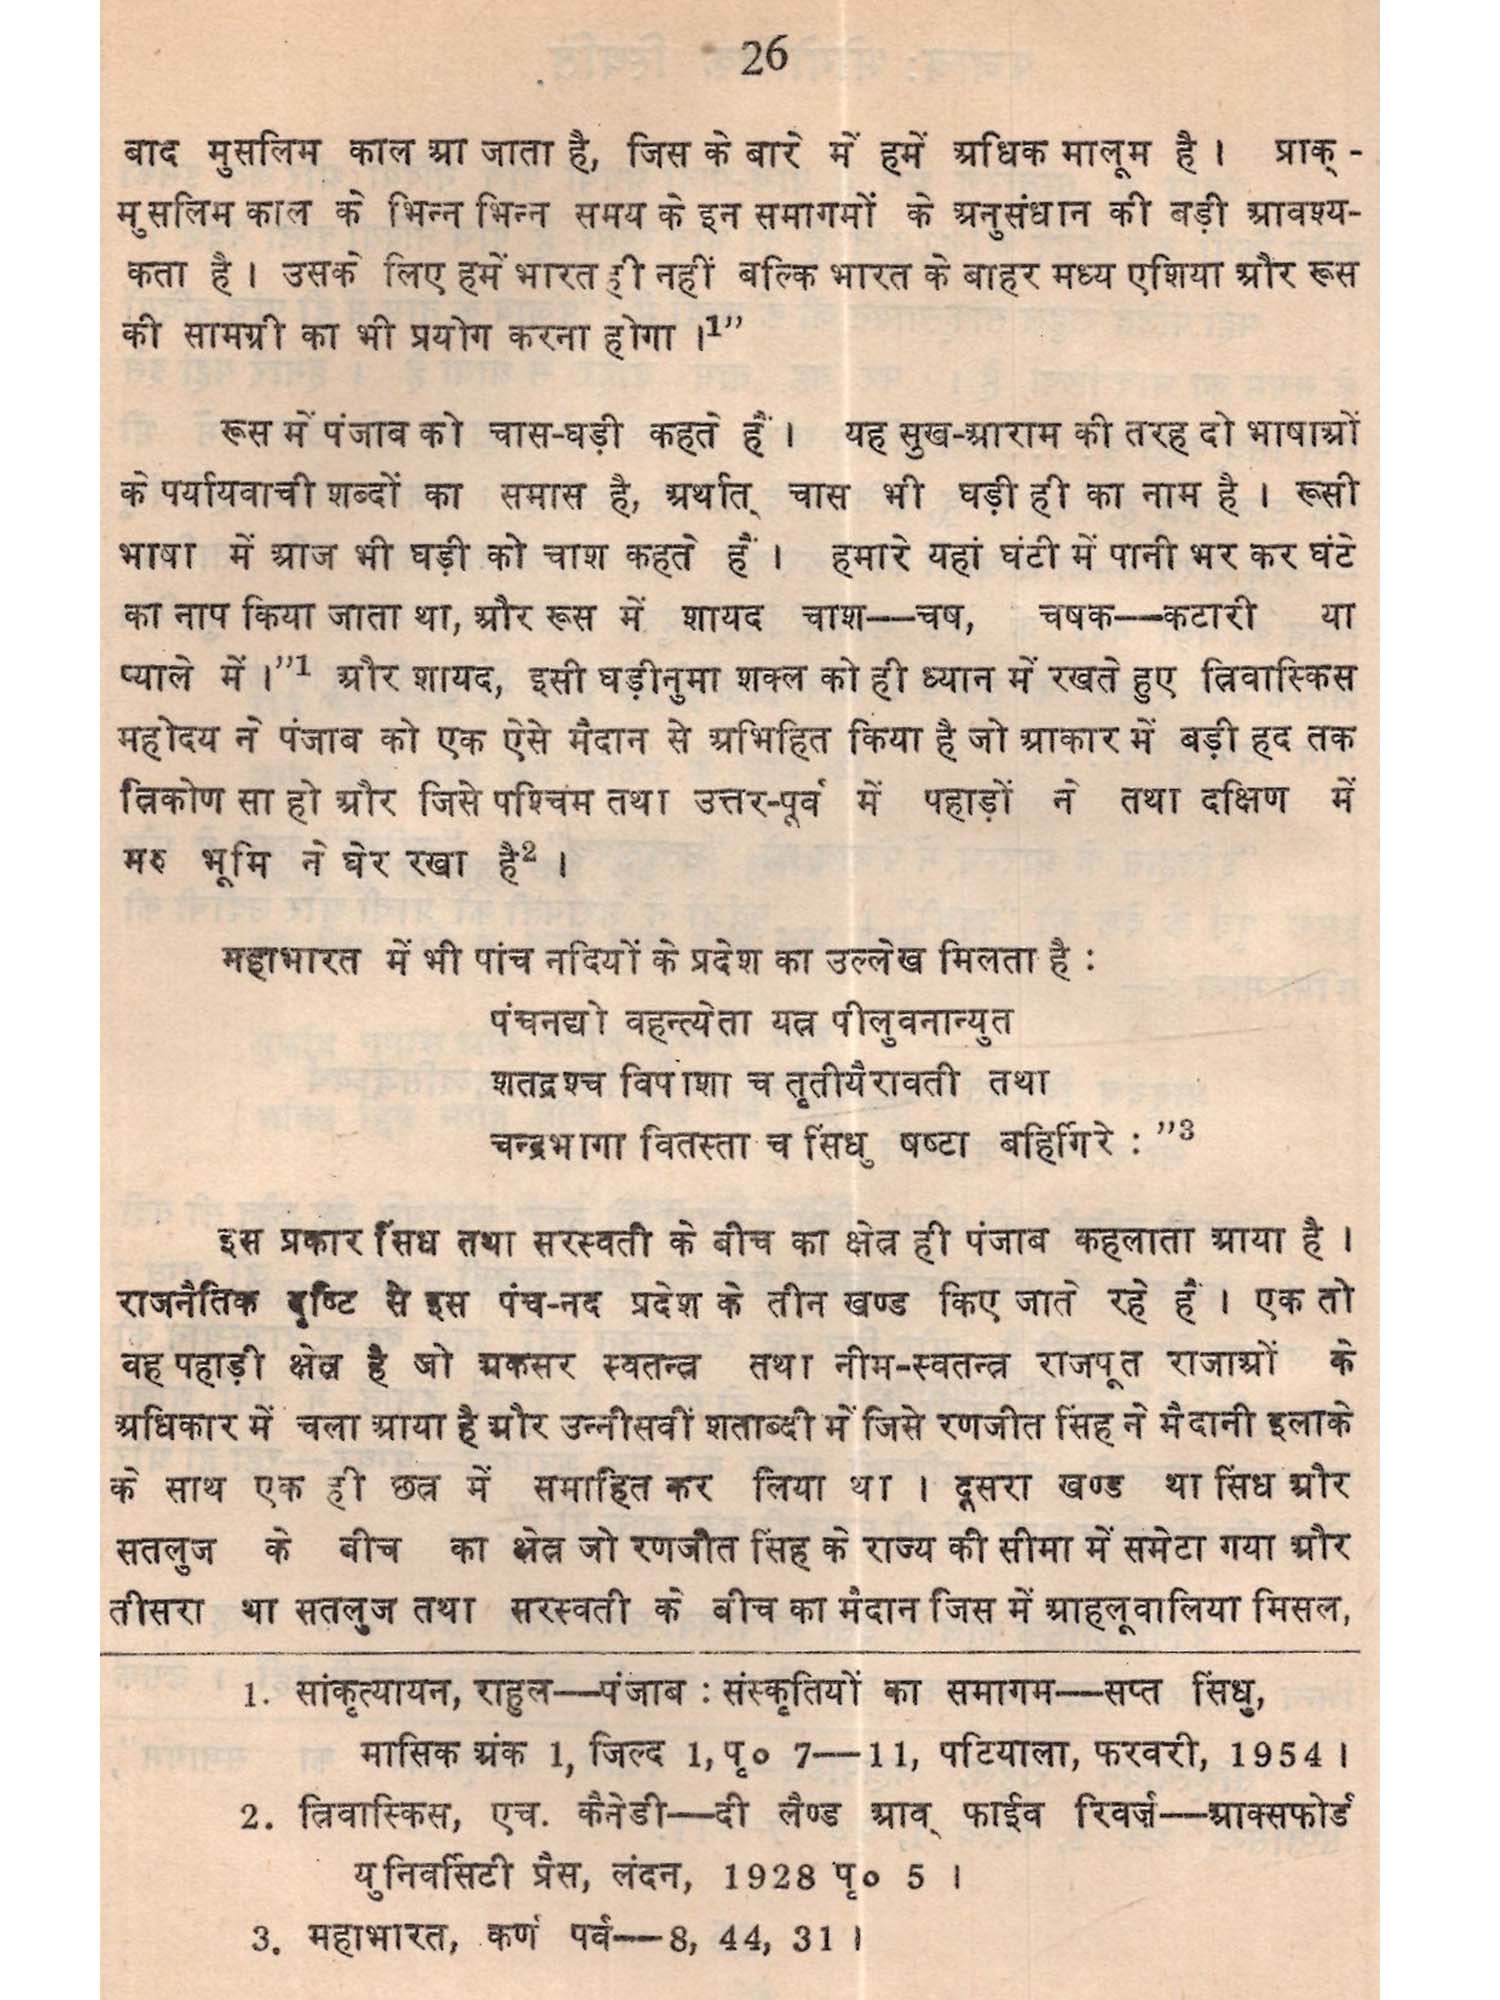 26
बाद मुसलिम काल आ जाता है, जिस के बारे में हमें अधिक मालूम है । प्राक्-
मुसलिम काल के भिन्न भिन्न समय के इन समागमों के अनुसंधान की बड़ी आवश्य-
कता है । उसके लिए हमें भारत ही नहीं बल्कि भारत के बाहर मध्य एशिया और रूस
की सामग्री का भी प्रयोग करना होगा ।1”
रूस में पंजाब को चास-घड़ी कहते हैं । यह सुख-आराम की तरह दो भाषाओं
के पर्यायवाची शब्दों का समास है, अर्थात् चास भी घड़ी ही का नाम है । रूसी
भाषा में आज भी घड़ी को चाश कहते हैं । हमारे यहां घंटी में पानी भर कर घंटे
का नाप किया जाता था, और रूस में शायद चाश—चष, चषक—कटारी या
प्याले में ।”1 और शायद, इसी घड़ीनुमा शक्ल को ही ध्यान में रखते हुए त्रिवास्किस
महोदय ने पंजाब को एक ऐसे मैदान से अभिहित किया है जो आकार में बड़ी हद तक
त्रिकोण सा हो और जिसे पश्चिम तथा उत्तर-पूर्व में पहाड़ों ने तथा दक्षिण में
मरु भूमि ने घेर रखा है2 ।
महाभारत में भी पांच नदियों के प्रदेश का उल्लेख मिलता है :
पंचनद्यो वहन्त्येता यत्र पीलुवनान्युत
शतद्रश्च विपाशा च तृतीयैरावती तथा
चन्द्रभागा वितस्ता च सिंधु षष्टा बहिर्गिरे : ”3
इस प्रकार सिंध तथा सरस्वती के बीच का क्षेत्र ही पंजाब कहलाता आया है ।
राजनैतिक दृष्टि से इस पंच-नद प्रदेश के तीन खण्ड किए जाते रहे हैं । एक तो
वह पहाड़ी क्षेत्र है जो अकसर स्वतन्त्र तथा नीम-स्वतन्त्र राजपूत राजाओं के
अधिकार में चला आया है और उन्नीसवीं शताब्दी में जिसे रणजीत सिंह ने मैदानी इलाके
के साथ एक ही छत्र में समाहित कर लिया था । दूसरा खण्ड था सिंध और
सतलुज के बीच का क्षेत्र जो रणजीत सिंह के राज्य की सीमा में समेटा गया और
तीसरा था सतलुज तथा सरस्वती के बीच का मैदान जिस में आहलूवालिया मिसल,
1. सांकृत्यायन, राहुल—पंजाब : संस्कृतियों का समागम—सप्त सिंधु,
मासिक अंक 1, जिल्द 1, पृ० 7—11, पटियाला, फरवरी, 1954 ।
2. त्रिवास्किस, एच. कैनेडी—दी लैण्ड आव् फाईव रिवर्ज़—आक्सफोर्ड
युनिवर्सिटी प्रैस, लंदन, 1928 पृ० 5 ।
3. महाभारत, कर्ण पर्व—8, 44, 31 ।